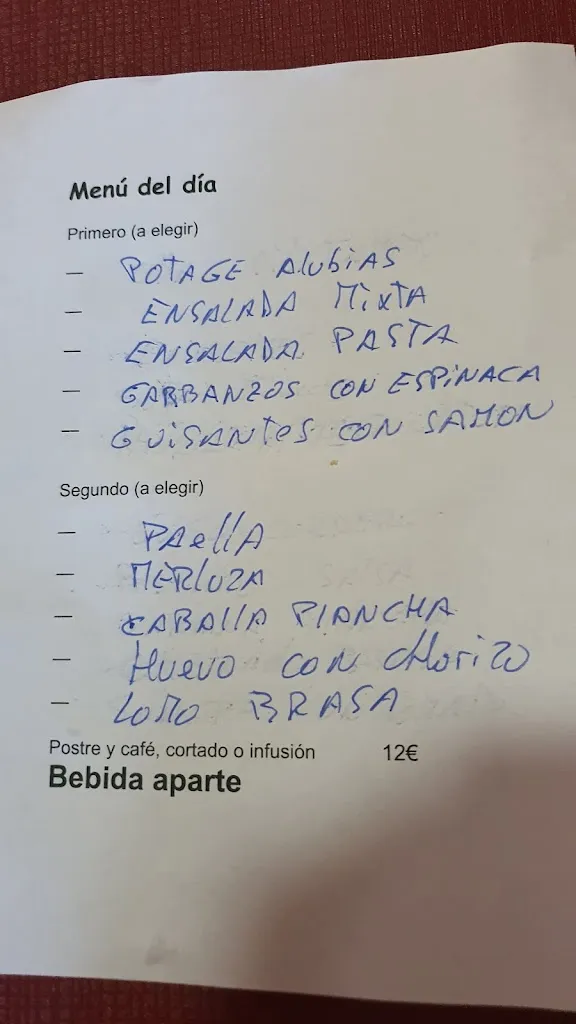 Menú del día
Primero (a elegir)
– POTAGE AlubiAS
– ENSALADA MixTA
– ENSALADA PASTA
– GARBANZOS CON ESPiNACA
– GUiSANTES CON SAMON
Segundo (a elegir)
– PAellA
– MERluzA
– CABAllA PlANCHA
– Huevo con chorizo
– LOMO BRASA
Postre y café, cortado o infusión 12€
Bebida aparte